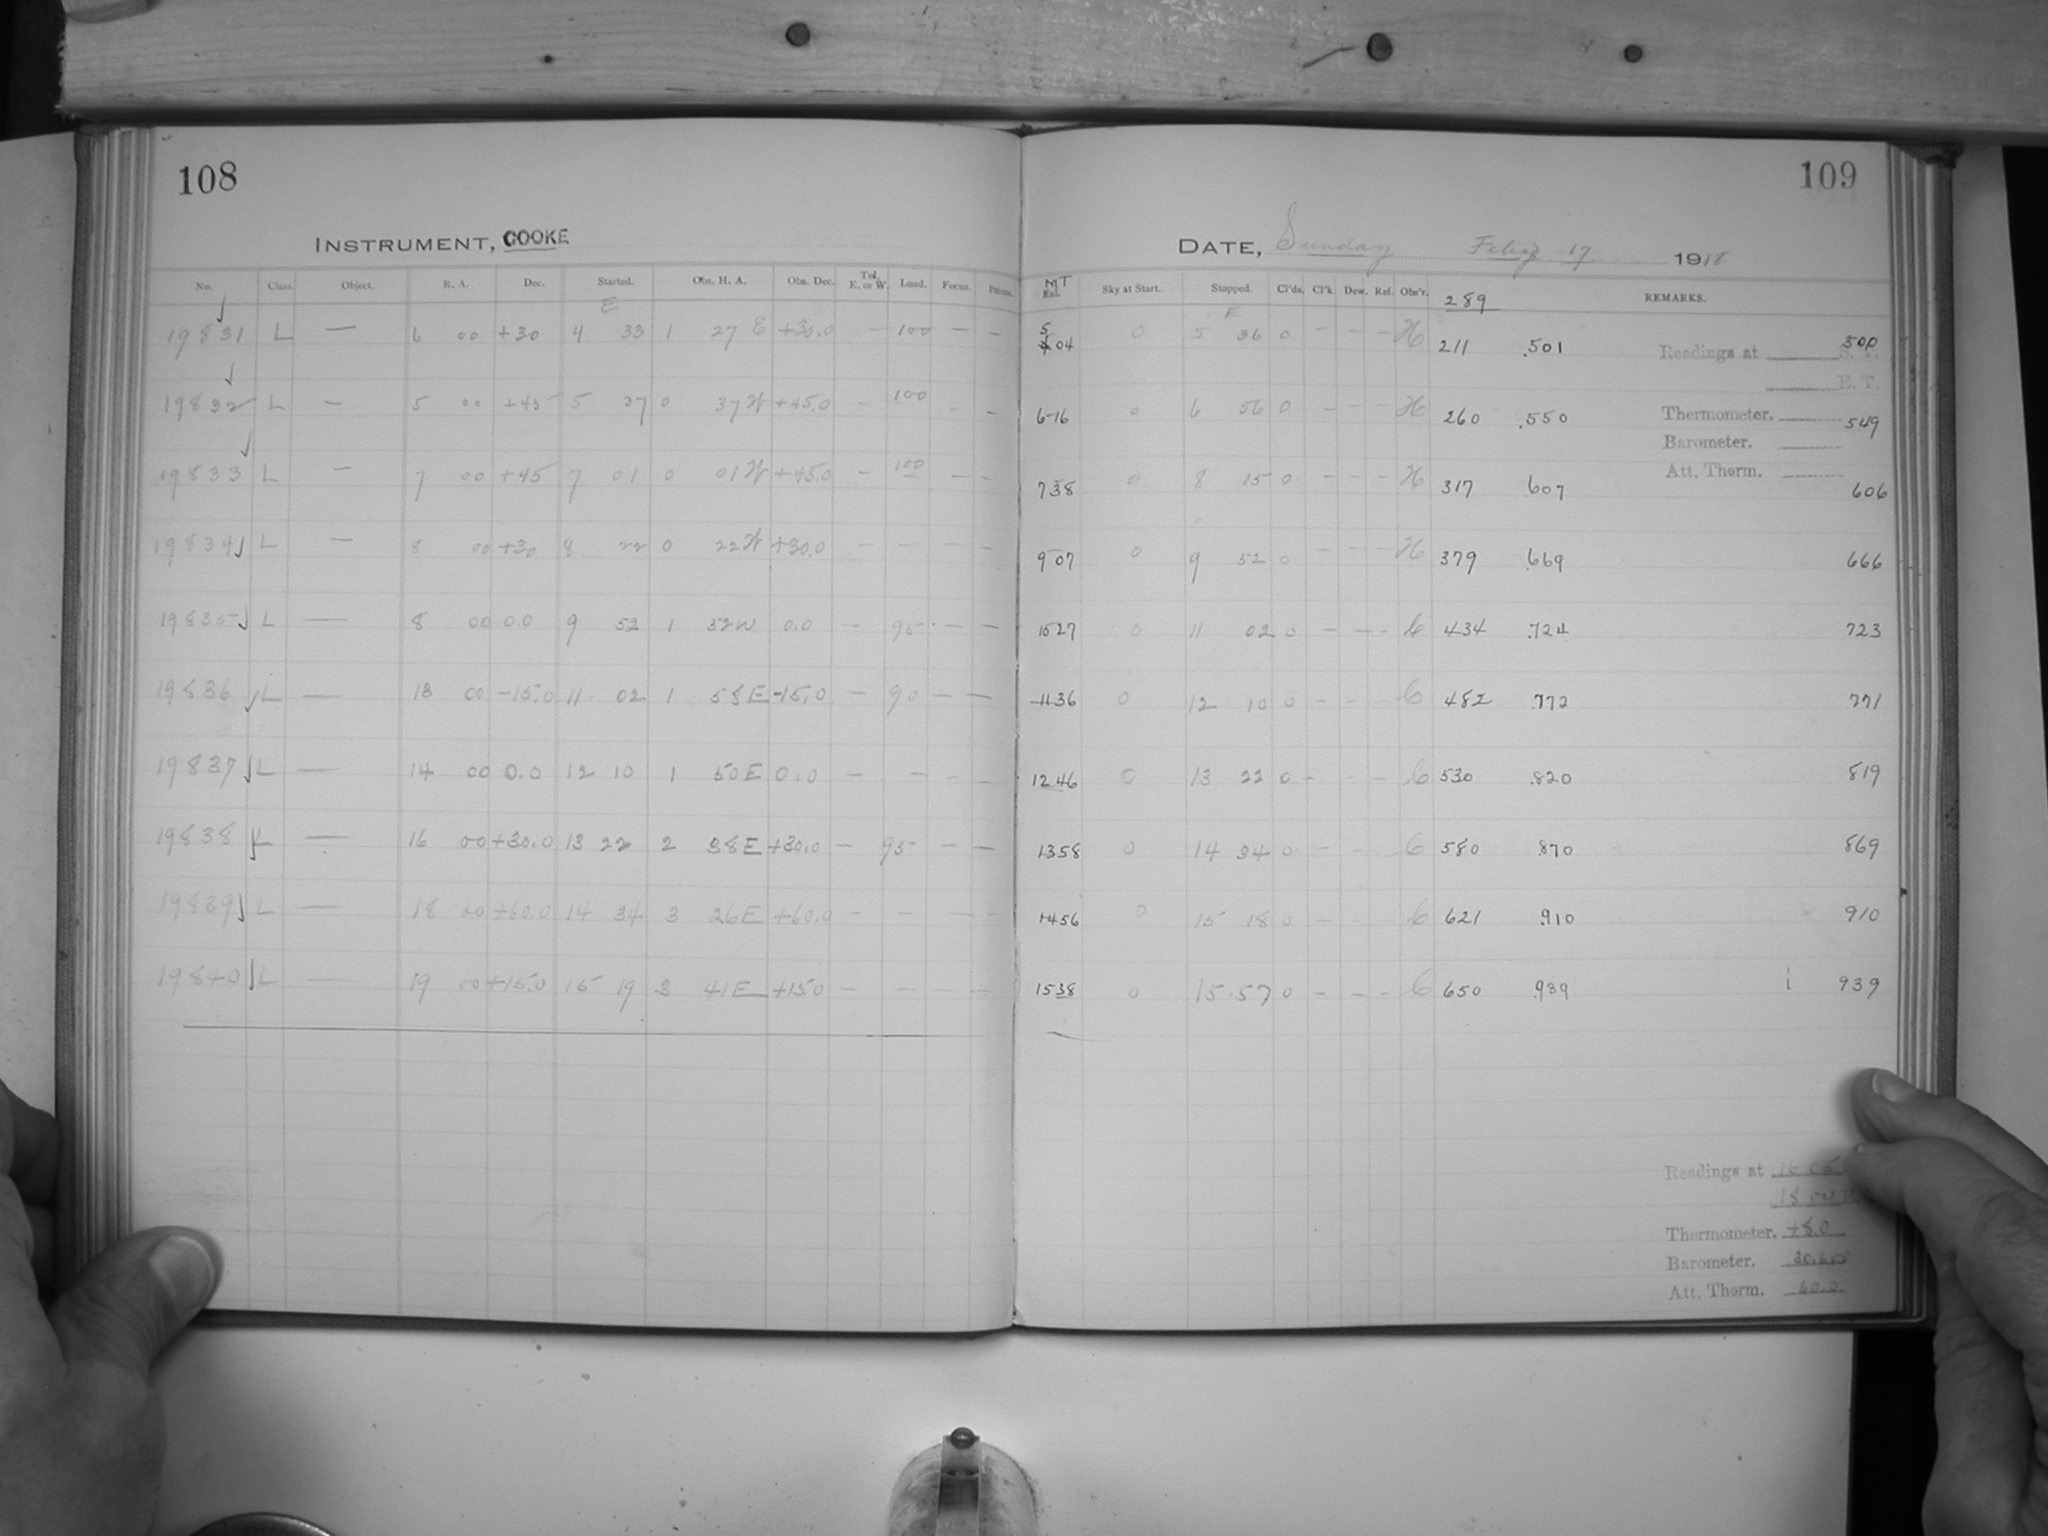 108
109
INSTRUMENT, COOKE
DATE, Sunday 17 1918
No. Class. Object. R. A. Dec. Started. Obs. H. A. Obs. Dec. Tel. E. or W. Load. Focus. Prisms.
MT Sky at Start. Stopped. Cl'ds. Cl'k Dew. Ref. Obs'r. 289 REMARKS.
E
19831 L — 6 00 +30 4 33 1 27 E +30.0 — 100 — —
5 04 0 5 36 0 — — — H 211 .501 500
Readings at S. T.
E. T.
19832 L — 5 00 +45 5 37 0 37 W +45.0 — 100 — —
6 16 0 6 56 0 — — — H 260 .550 549
Thermometer.
Barometer.
Att. Therm.
19833 L — 7 00 +45 7 01 0 01 W +45.0 — 100 — —
7 38 0 8 15 0 — — — H 317 .607 606
19834 L — 8 00 +30 8 22 0 22 W +30.0 — — — —
9 07 0 9 52 0 — — — H 379 .669 666
19835 L — 8 00 0.0 9 52 1 52 W 0.0 — 95 — —
10 27 0 11 02 0 — — — 434 .724 723
19836 L — 13 00 -15.0 11 02 1 58 E -15.0 — 90 — —
11 36 0 12 10 0 — — — 482 .772 771
19837 L — 14 00 0.0 12 10 1 50 E 0.0 — — — —
12 46 0 13 22 0 — — — 530 .820 819
19838 L — 16 00 +30.0 13 22 2 38 E +30.0 — 95 — —
13 58 0 14 34 0 — — — 580 .870 869
19839 L — 18 00 +60.0 14 34 3 26 E +60.0 — — — —
14 56 0 15 18 0 — — — 621 .910 910
19840 L — 19 00 +15.0 15 19 3 41 E +15.0 — — — —
15 38 0 15 57 0 — — — 650 .939 939
Readings at 16
18
Thermometer. +8.0
Barometer.
Att. Therm. 60.0